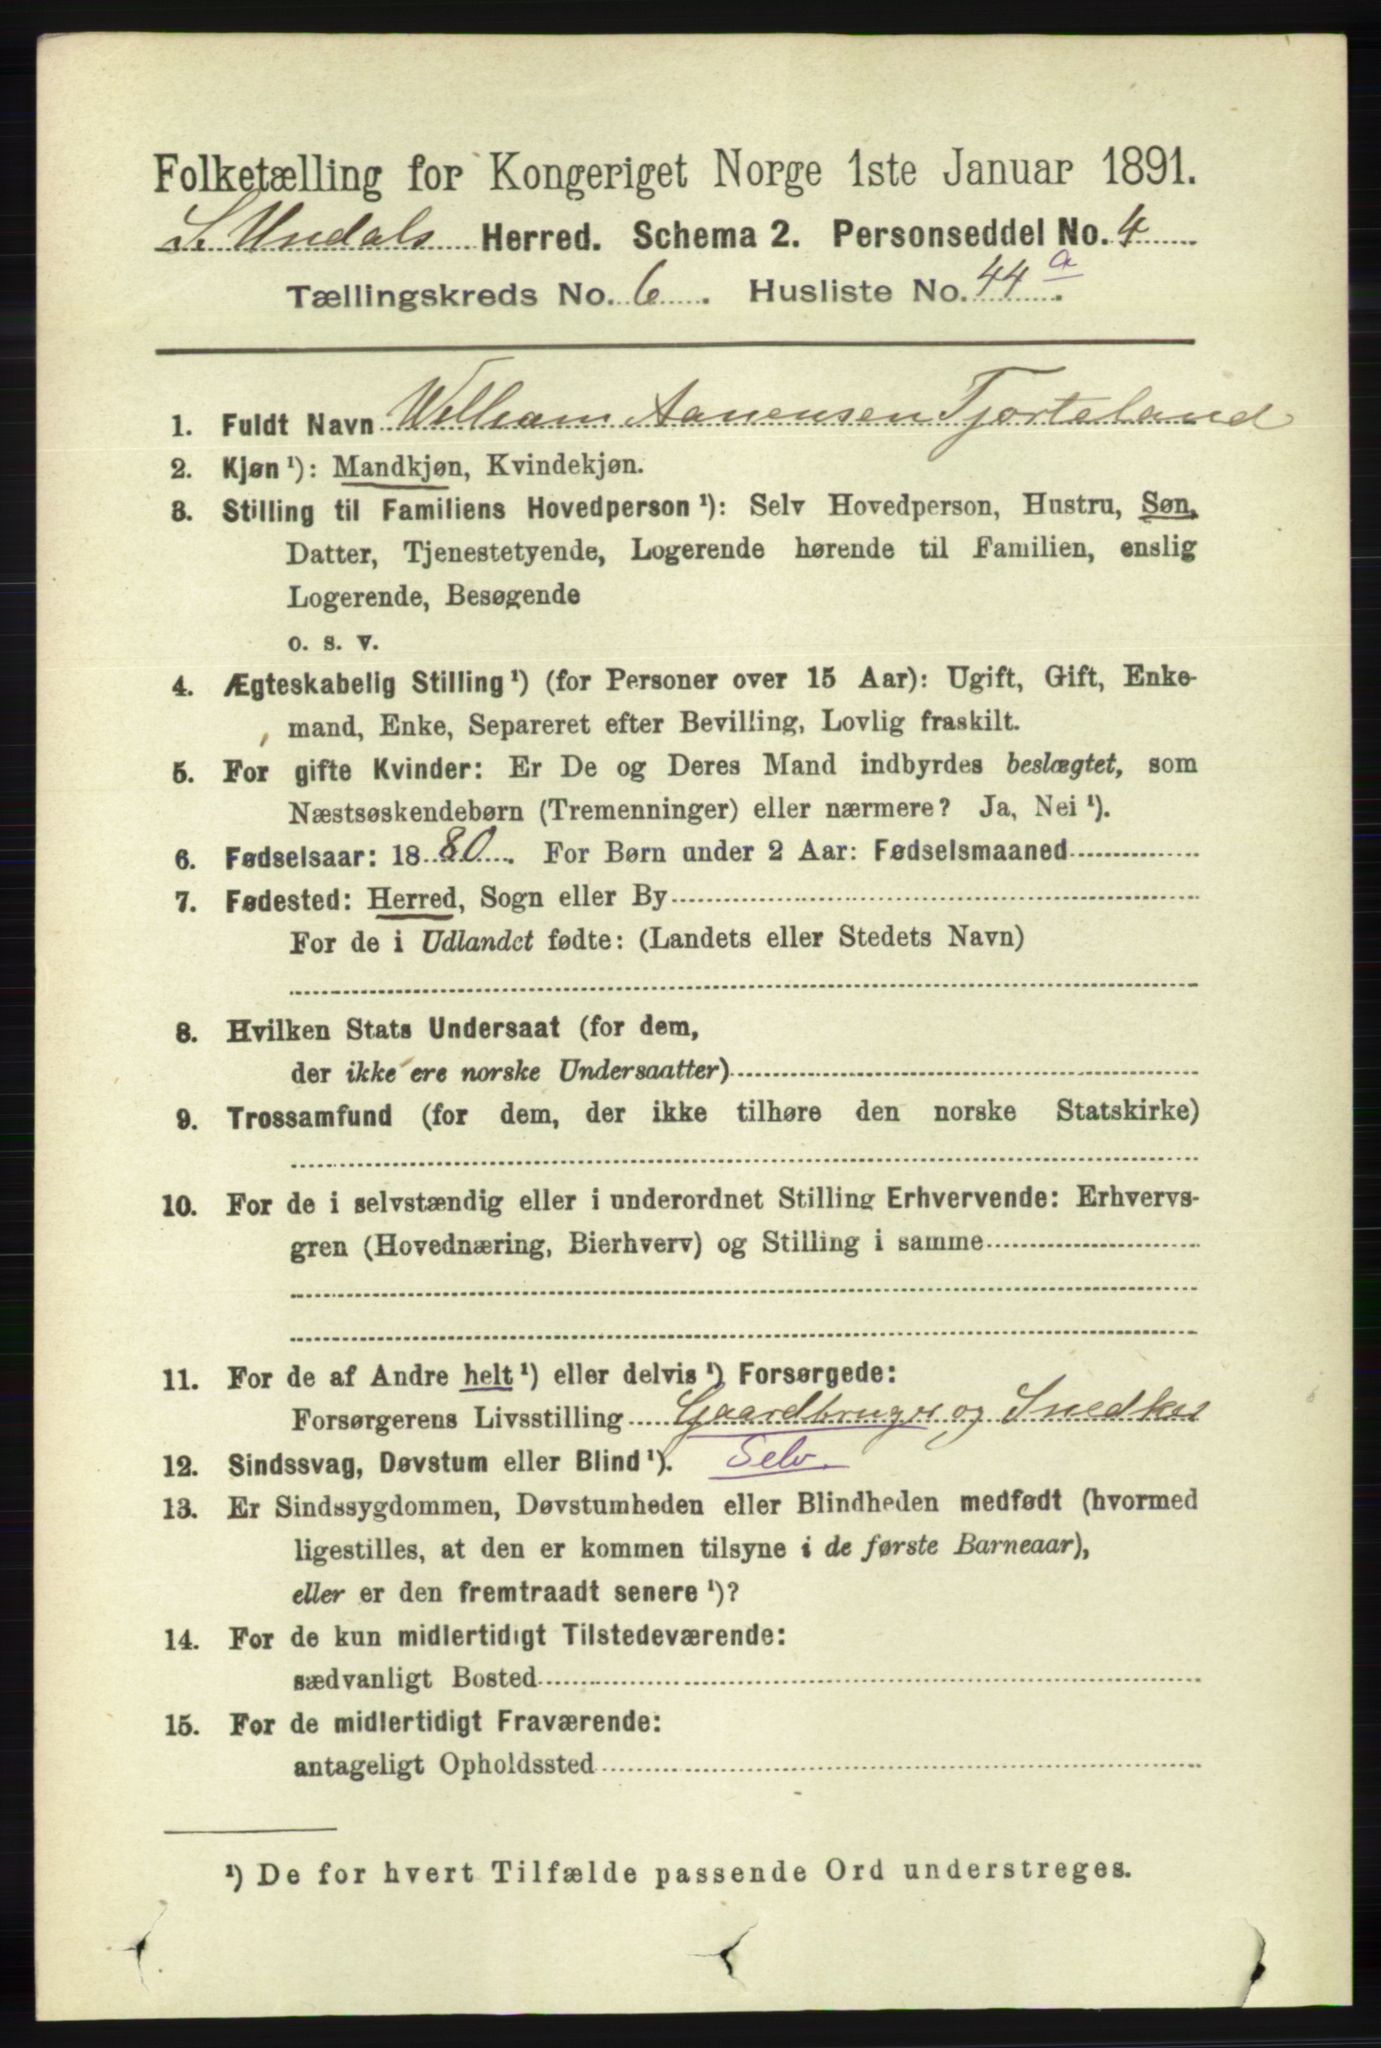 Folketælling for Kongeriget Norge 1ste Januar 1891.
S. Undals Herred. Schema 2. Personseddel No. 4
Tællingskreds No. 6. Husliste No. 44 a.
1. Fuldt Navn William Aanensen Tjorteland
2. Kjøn ¹): Mandkjøn, Kvindekjøn.
3. Stilling til Familiens Hovedperson ¹): Selv Hovedperson, Hustru, Søn,
Datter, Tjenestetyende, Logerende hørende til Familien, enslig
Logerende, Besøgende
o. s. v.
4. Ægteskabelig Stilling ¹) (for Personer over 15 Aar): Ugift, Gift, Enke-
mand, Enke, Separeret efter Bevilling, Lovlig fraskilt.
5. For gifte Kvinder: Er De og Deres Mand indbyrdes beslægtet, som
Næstsøskendebørn (Tremenninger) eller nærmere? Ja, Nei ¹).
6. Fødselsaar: 1880. For Børn under 2 Aar: Fødselsmaaned
7. Fødested: Herred, Sogn eller By
For de i Udlandet fødte: (Landets eller Stedets Navn)
8. Hvilken Stats Undersaat (for dem,
der ikke ere norske Undersaatter)
9. Trossamfund (for dem, der ikke tilhøre den norske Statskirke)
10. For de i selvstændig eller i underordnet Stilling Erhvervende: Erhvervs-
gren (Hovednæring, Bierhverv) og Stilling i samme
11. For de af Andre helt ¹) eller delvis ¹) Forsørgede:
Forsørgerens Livsstilling Gaardbruger og Snedker
12. Sindssvag, Døvstum eller Blind ¹). Selv.
13. Er Sindssygdommen, Døvstumheden eller Blindheden medfødt (hvormed
ligestilles, at den er kommen tilsyne i de første Barneaar),
eller er den fremtraadt senere ¹)?
14. For de kun midlertidigt Tilstedeværende:
sædvanligt Bosted
15. For de midlertidigt Fraværende:
antageligt Opholdssted
¹) De for hvert Tilfælde passende Ord understreges.